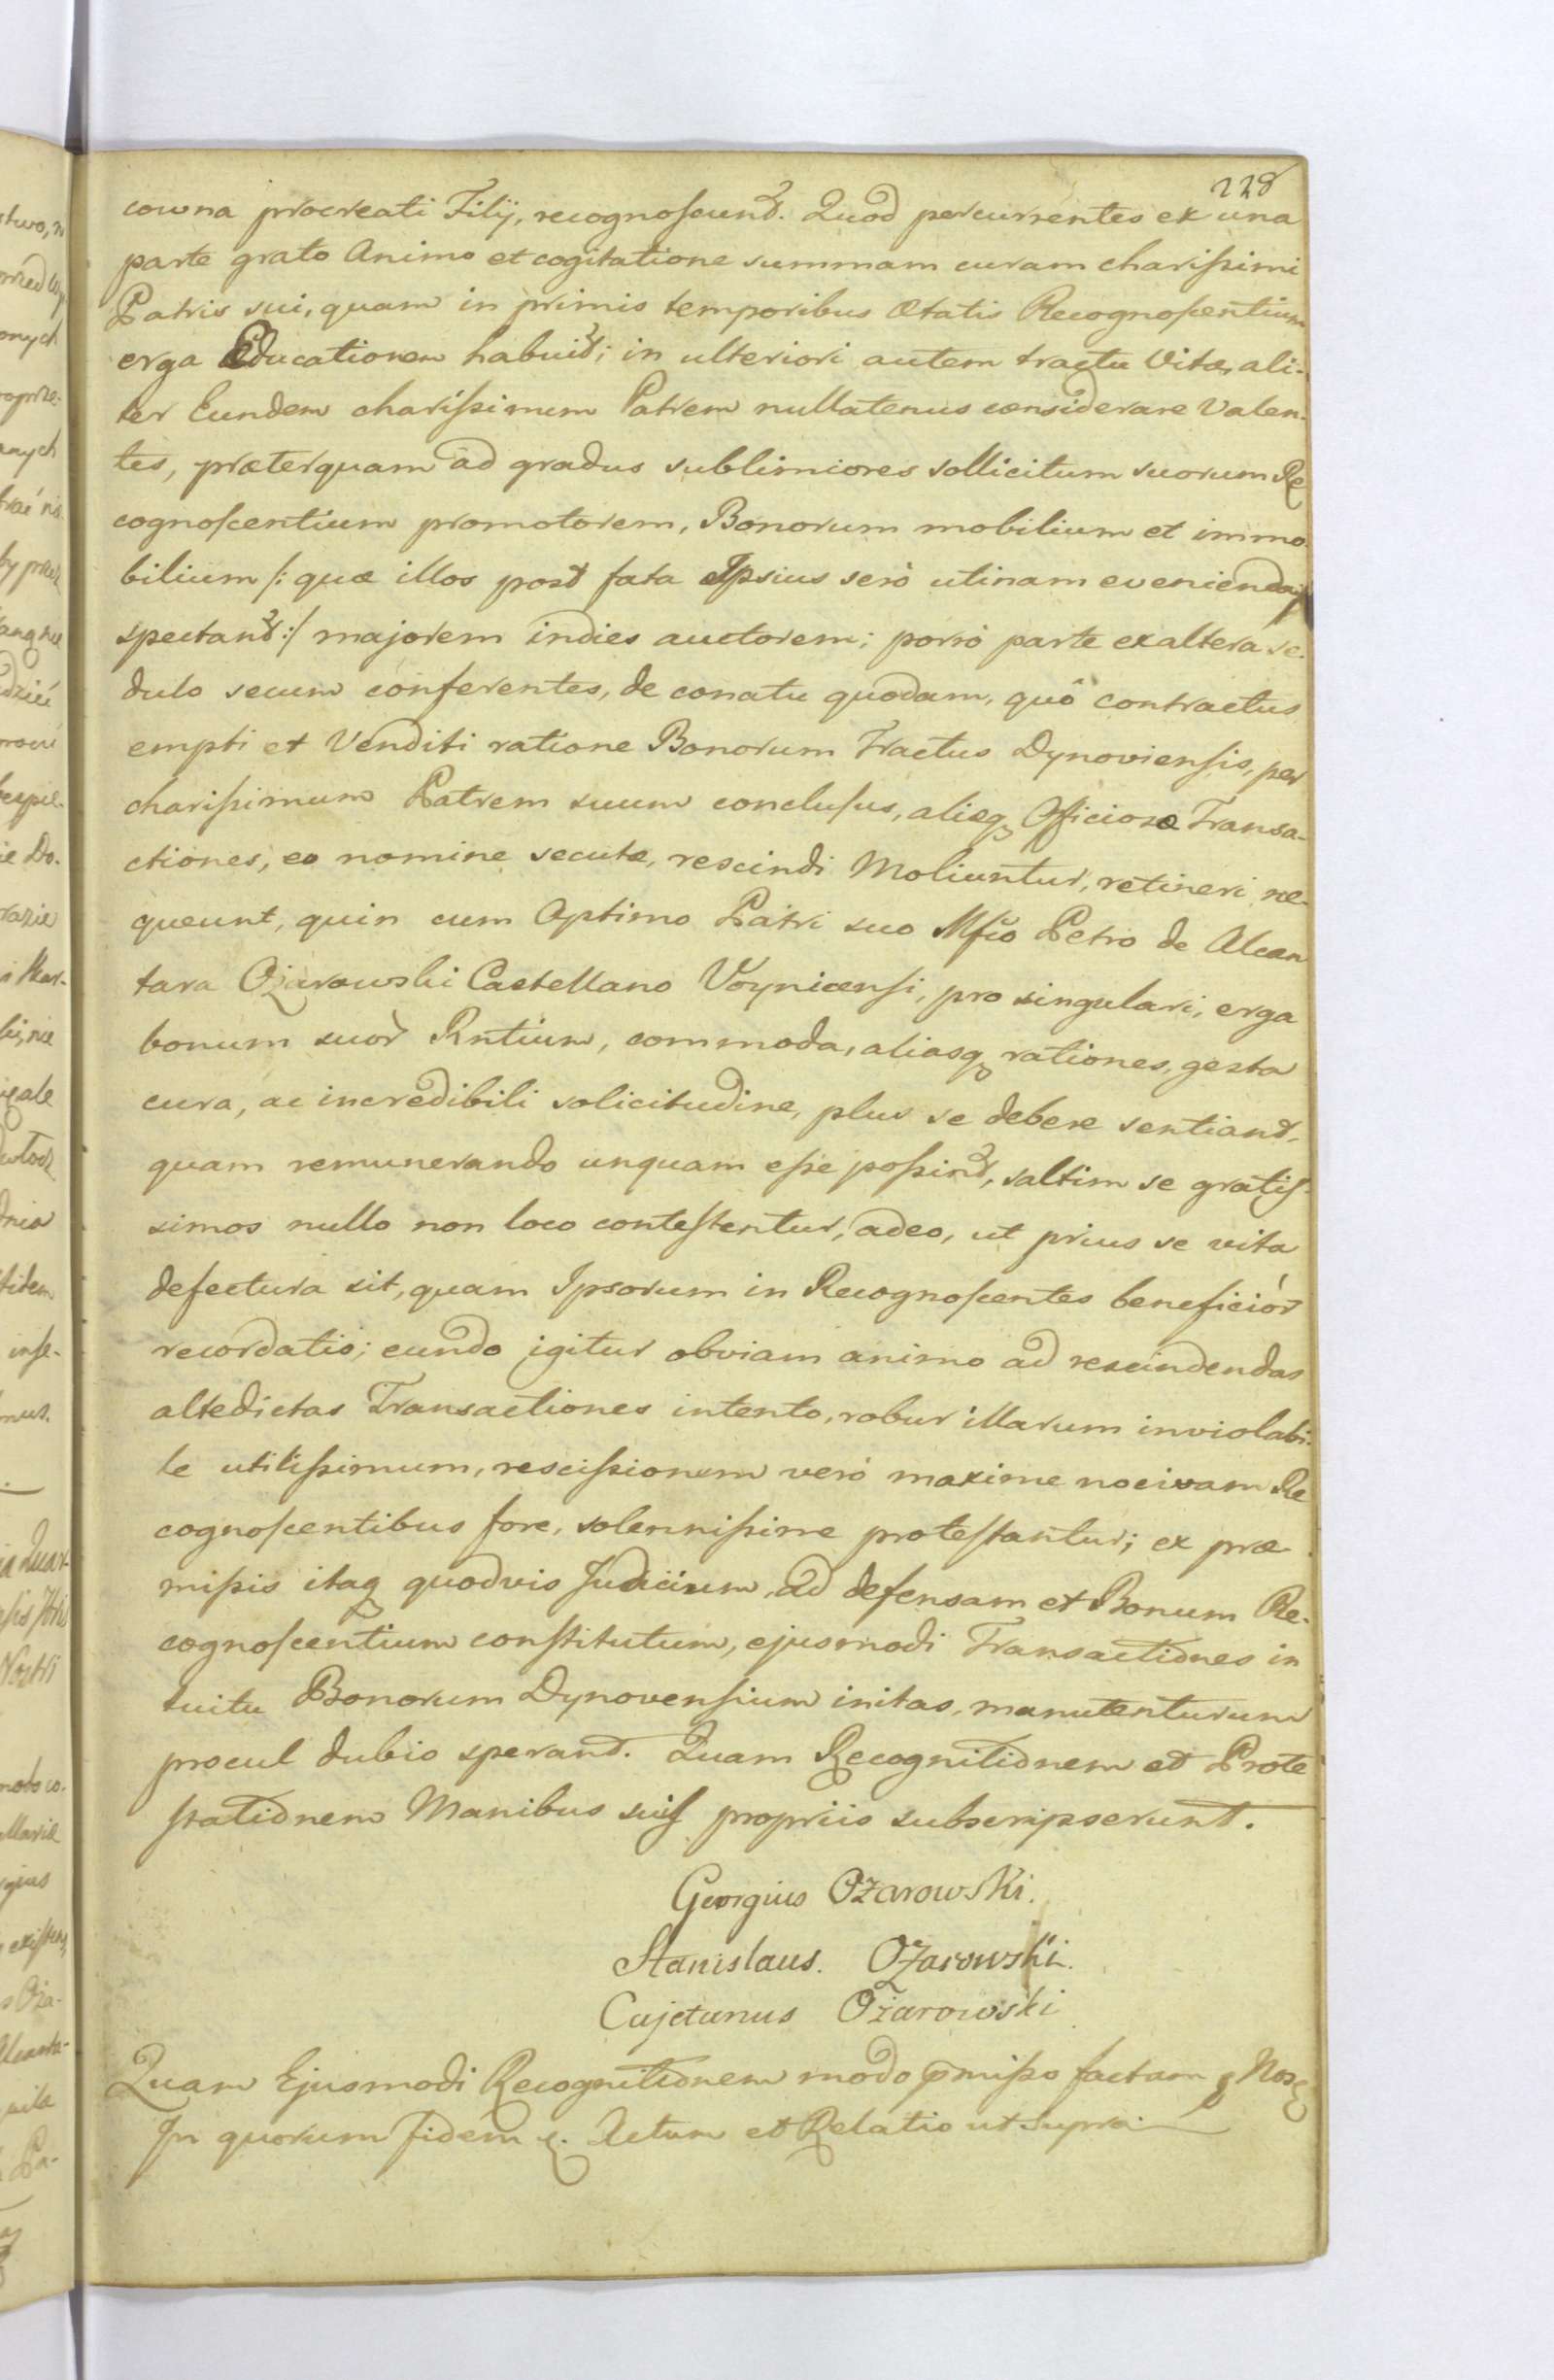 228
cowna procreati Filij, recognoscunt. Quod percurrentes ex una
parte grato Animo et cogitatione summam curam charissimi
Patris sui, quam in primis temporibus Ætatis Recognoscentium
erga Educationem habuit; in ulteriori autem tractu Vitæ, ali-
ter Eundem charissimum Patrem nullatenus considerare Valen-
tes, præterquam ad gradus sublimiores sollicitum suorum Re
cognoscentium promotorem, Bonorum mobilium et immo-
bilium /: quæ illos post fata Ipsius serò utinam evenienda
spectant :/ majorem indies auctorem; porrò parte ex altera se-
dulo secum conferentes, de conatu quodam, quô contractus
empti et Venditi ratione Bonorum Tractus Dynoviensis, per
charissimum Patrem suum conclusus, aliæq Officiosæ Transa-
ctiones, eo nomine secutæ, rescindi Moliuntur, retineri ne-
queunt, quin cum Optimo Patri suo Mfico Petro de Alcan
tara Ożarowski Castellano Voynicensi, pro singulari, erga
bonum suor Rntium, commoda, aliasq rationes, gesta
cura, ac incredibili solicitudine, plus se debere sentiant,
quam remunerando unquam esse possint, saltim se gratis-
simos nullo non loco contestentur, adeo, ut prius se vita
defectura sit, quam Ipsorum in Recognoscentes beneficiór
recordatio; eundo igitur obviam animo ad rescindendas
altedictas Transactiones intento, robur illarum inviolabi-
le utilissimum, rescissionem verò maxime nocivam Re
cognoscentibus fore, solennissime protestantur; ex præ-
missis itaq quodvis Judicium, ad defensam et Bonum Re-
cognoscentium constitutum, ejusmodi Transactiones in
tuitu Bonorum Dynovensium initas, manutenturum
procul dubio sperant. Quam Recognitionem et Prote
stationem Manibus suis propriis subscripserunt.
Georgius Ożarowski.
Stanislaus. Ożarowski.
Cajetanus Ożarowski
Quam Ejusmodi Recognitionem modo pmisso factam
In quorum fidem Actum et Relatio ut supra